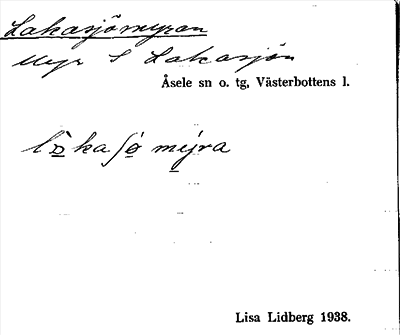 Lakasjömyran
Myr S Lakasjön
Åsele sn o. tg, Västerbottens l.
Lisa Lidberg 1938.